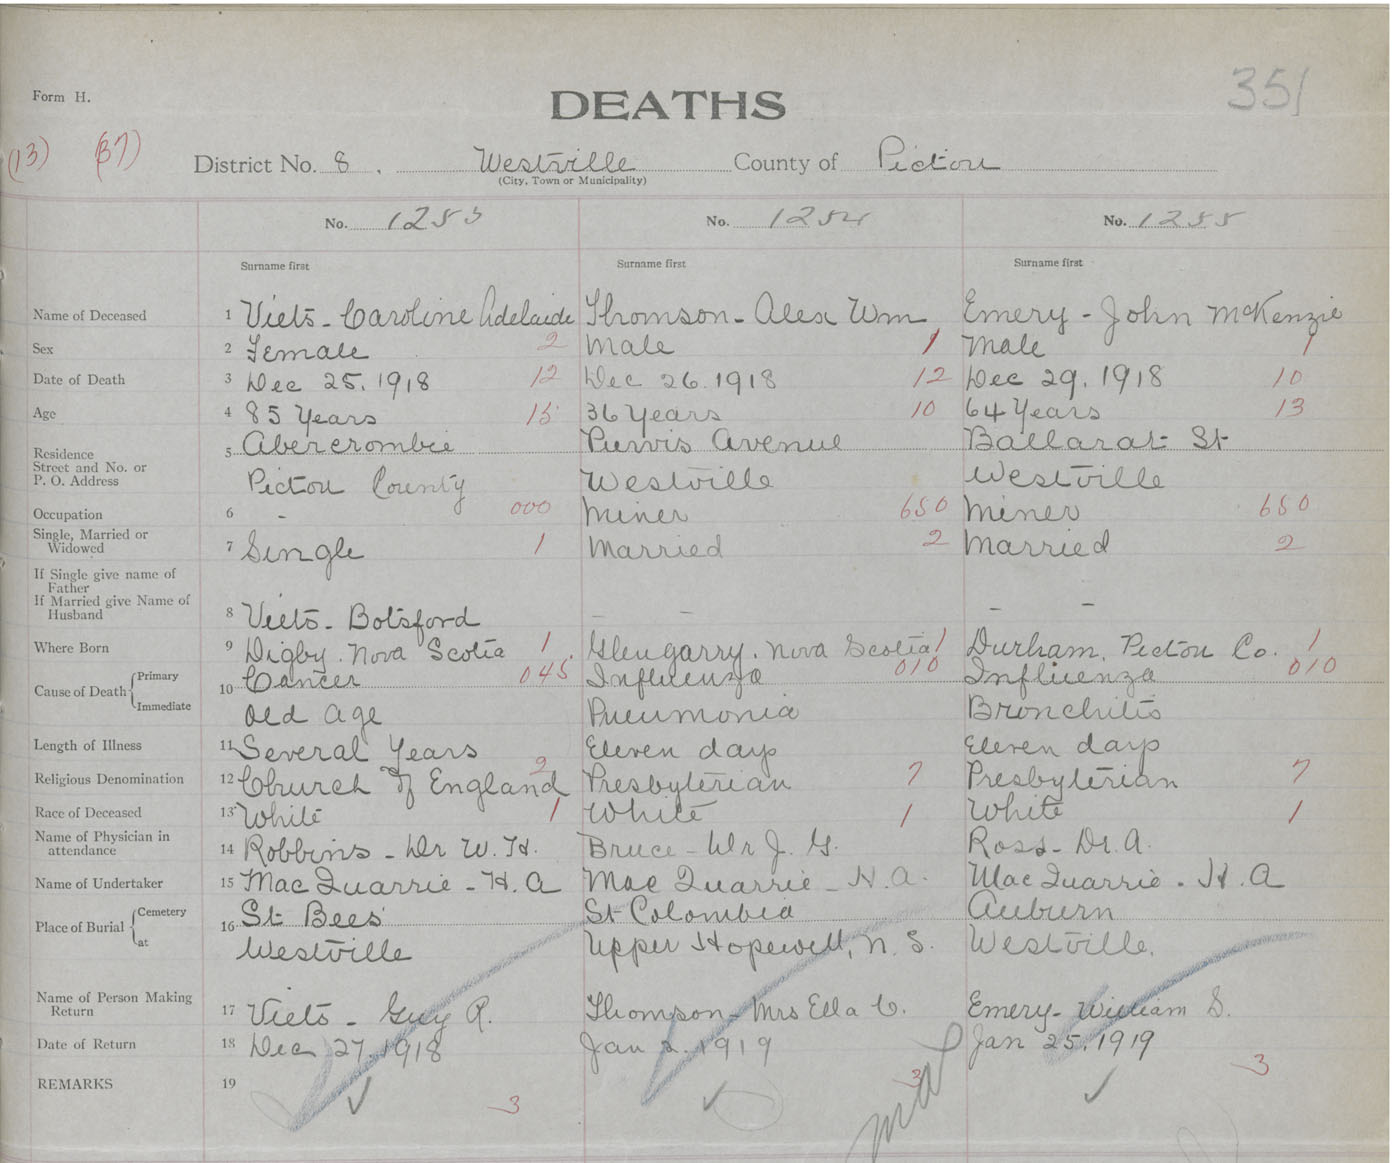 351
Form H.
DEATHS
(13) (37)
District No. 8. Westville County of Pictou
(City, Town or Municipality)
No. 1253 No. 1254 No. 1255
Surname first Surname first Surname first
Name of Deceased 1 Viets - Caroline Adelaide Thomson - Alex Wm Emery - John McKenzie
Sex 2 Female 2 Male 1 Male 1
Date of Death 3 Dec 25, 1918 12 Dec 26. 1918 12 Dec 29, 1918 10
Age 4 85 Years 15 36 Years 10 64 Years 13
Residence 5 Abercrombie Purvis Avenue Ballarat St
Street and No. or
P. O. Address Pictou County Westville Westville
Occupation 6 - 000 Miner 650 Miner 650
Single, Married or
Widowed 7 Single 1 Married 2 Married 2
If Single give name of
Father
If Married give Name of
Husband 8 Viets - Botsford - - - -
Where Born 9 Digby. Nova Scotia 1 Glengarry. Nova Scotia 1 Durham, Pictou Co. 1
Cause of Death Primary 10 Cancer 045 Influenza 010 Influenza 010
Immediate Old Age Pneumonia Bronchitis
Length of Illness 11 Several Years Eleven days Eleven days
Religious Denomination 12 Church of England 2 Presbyterian 7 Presbyterian 7
Race of Deceased 13 White 1 White 1 White 1
Name of Physician in
attendance 14 Robbins - Dr W. H. Bruce - Dr J. G. Ross - Dr. A.
Name of Undertaker 15 Mac Quarrie - H. A Mac Quarrie - H. A. Mac Quarrie - H. A
Place of Burial Cemetery 16 St Bees' St Colombia Auburn
at Westville Upper Hopewell, N. S. Westville.
Name of Person Making
Return 17 Viets - Guy R. Thomson - Mrs Ella C. Emery - William S.
Date of Return 18 Dec 27, 1918 Jan 2. 1919 Jan 25, 1919
REMARKS 19 3 3 3